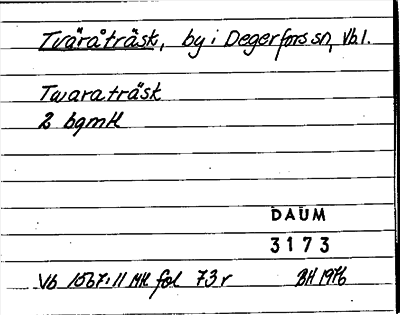 Tväråträsk, by i Degerfors sn, Vb l.
Twaraträsk
2 bgmH
DAUM
3173
Vb 1567:11 MH fol 73 r BH 1976